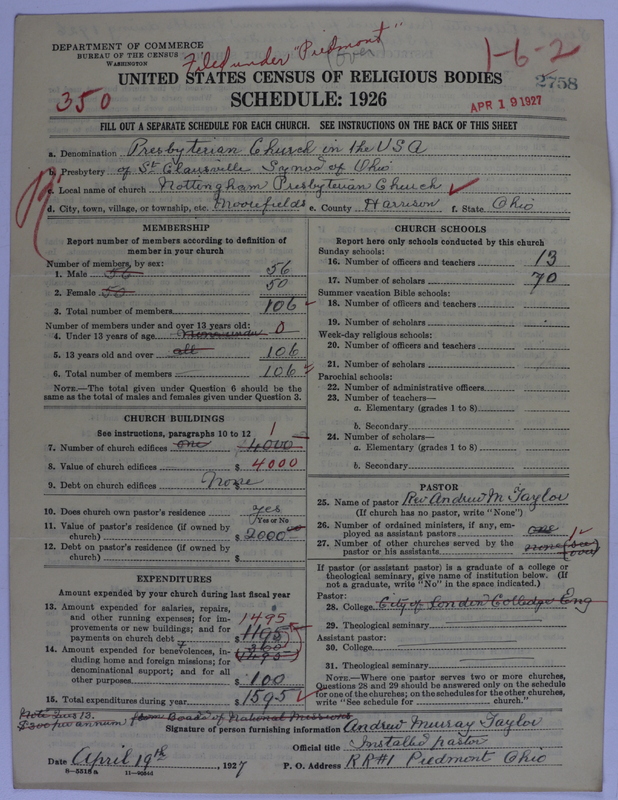 DEPARTMENT OF COMMERCE
BUREAU OF THE CENSUS
WASHINGTON
Filed under "Piedmont"
(over)
1-6-2
UNITED STATES CENSUS OF RELIGIOUS BODIES
2758
350
SCHEDULE: 1926
APR 19 1927
FILL OUT A SEPARATE SCHEDULE FOR EACH CHURCH. SEE INSTRUCTIONS ON THE BACK OF THIS SHEET
a. Denomination Presbyterian Church in the USA
b. Presbytery of St Clairsville Synod of Ohio
c. Local name of church Nottingham Presbyterian Church
d. City, town, village, or township, etc. Moorefields e. County Harrison f. State Ohio
MEMBERSHIP
Report number of members according to definition of
member in your church
Number of members, by sex:
1. Male 56 56
2. Female 50 50
3. Total number of members 106
Number of members under and over 13 years old:
4. Under 13 years of age None under 0
5. 13 years old and over all 106
6. Total number of members 106
NOTE.—The total given under Question 6 should be the
same as the total of males and females given under Question 3.
CHURCH BUILDINGS
See instructions, paragraphs 10 to 12
7. Number of church edifices one 4000 1
8. Value of church edifices $ 4000
9. Debt on church edifices None $
10. Does church own pastor's residence yes
Yes or No
11. Value of pastor's residence (if owned by
church) $ 2000 00
12. Debt on pastor's residence (if owned by
church) $
EXPENDITURES
Amount expended by your church during last fiscal year
13. Amount expended for salaries, repairs,
and other running expenses; for im-
provements or new buildings; and for
payments on church debt $ 1195 1495
14. Amount expended for benevolences, in-
cluding home and foreign missions; for
denominational support; and for all
other purposes $ 100
15. Total expenditures during year $ 1595
Note Ques 13.
$300 per annum from Board of National Missions
CHURCH SCHOOLS
Report here only schools conducted by this church
Sunday schools:
16. Number of officers and teachers 13
17. Number of scholars 70
Summer vacation Bible schools:
18. Number of officers and teachers
19. Number of scholars
Week-day religious schools:
20. Number of officers and teachers
21. Number of scholars
Parochial schools:
22. Number of administrative officers
23. Number of teachers—
a. Elementary (grades 1 to 8)
b. Secondary
24. Number of scholars—
a. Elementary (grades 1 to 8)
b. Secondary
PASTOR
25. Name of pastor Rev Andrew M Taylor
(If church has no pastor, write "None")
26. Number of ordained ministers, if any, em-
ployed as assistant pastors one
27. Number of other churches served by the
pastor or his assistants none 1 (see over)
If pastor (or assistant pastor) is a graduate of a college or
theological seminary, give name of institution below. (If
not a graduate, write "No" in the space indicated.)
Pastor:
28. College City of London Colledge Eng
29. Theological seminary
Assistant pastor:
30. College
31. Theological seminary
NOTE.—Where one pastor serves two or more churches,
Questions 28 and 29 should be answered only on the schedule
for one of the churches; on the schedules for the other churches,
write "See schedule for church."
Signature of person furnishing information Andrew Murray Taylor
Official title Installed pastor
Date April 19th, 1927 P. O. Address RR#1 Piedmont Ohio
8-5318a 11-90846